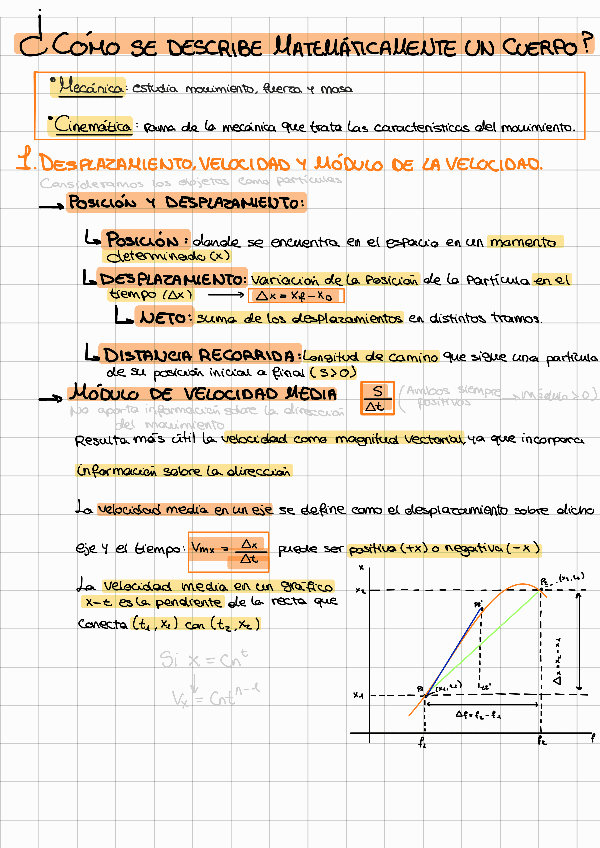 ¿CÓMO SE DESCRIBE MATEMÁTICAMENTE UN CUERPO?
• Mecánica: estudia movimiento, fuerza y masa
• Cinemática: rama de la mecánica que trata las características del movimiento.
1. DESPLAZAMIENTO, VELOCIDAD Y MÓDULO DE LA VELOCIDAD.
Consideramos los objetos como partículas
→ POSICIÓN Y DESPLAZAMIENTO:
↳ POSICIÓN: donde se encuentra en el espacio en un momento
determinado (x)
↳ DESPLAZAMIENTO: Variación de la Posición de la Partícula en el
tiempo (Δx) → Δx = xf - x0
↳ NETO: suma de los desplazamientos en distintos tramos.
↳ DISTANCIA RECORRIDA: Longitud de camino que sigue una partícula
de su posición inicial a final (s>0)
→ MÓDULO DE VELOCIDAD MEDIA S/Δt (Ambos siempre positivos → módulo>0)
No aporta información sobre la dirección
del movimiento
Resulta más útil la velocidad como magnitud vectorial, ya que incorpora
información sobre la dirección
La velocidad media en un eje se define como el desplazamiento sobre dicho
eje y el tiempo: Vmx = Δx/Δt puede ser positiva (+x) o negativa (-x)
La velocidad media en un gráfico
x-t es la pendiente de la recta que
conecta (t1, x1) con (t2, x2)
Si x = Cn^t
↓
Vx = Cnt^n-1
x
x2
P2
(x2, t2)
P2'
Δx = x2 - x1
x1
P1
(x1, t1)
t2'
Δt = t2 - t1
t1
t2
t